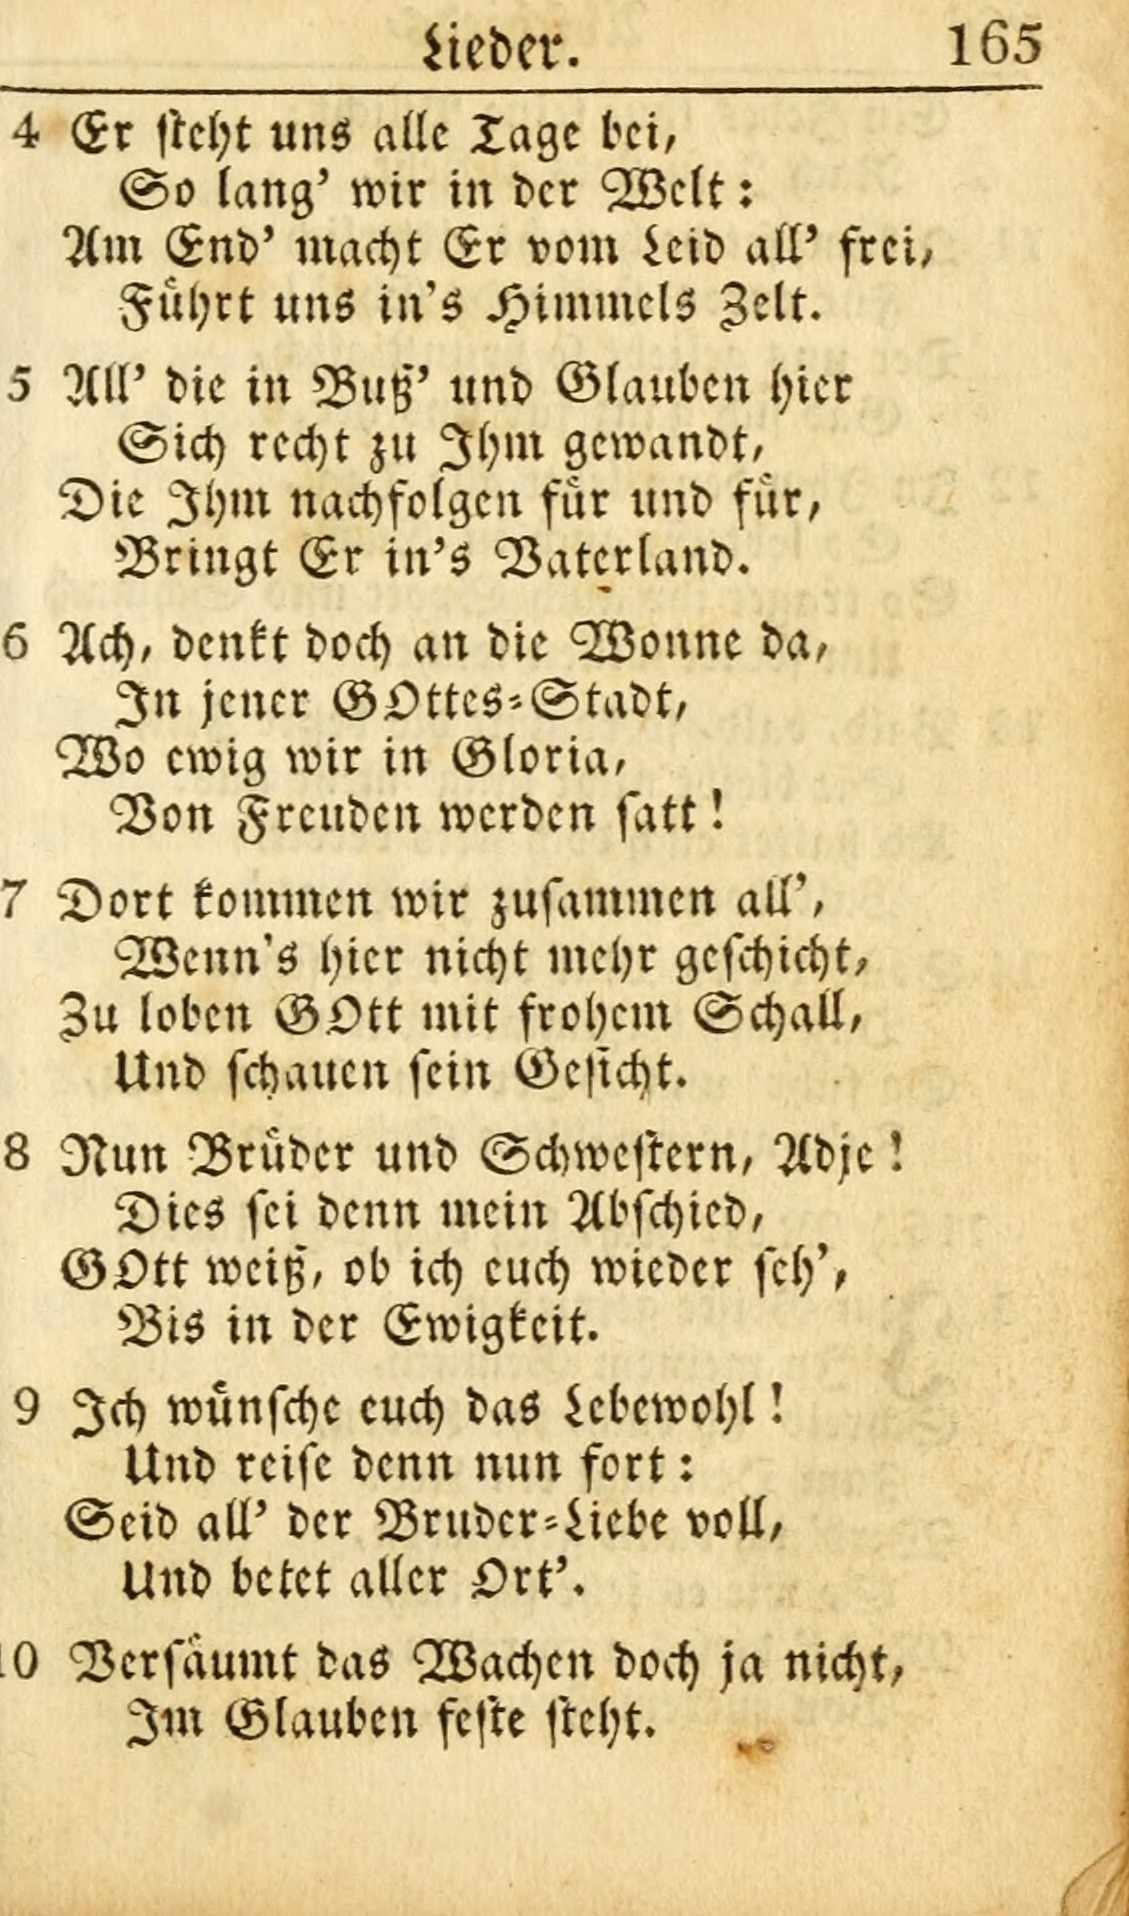 Lieder. 165
4 Er steht uns alle Tage bei,
So lang' wir in der Welt:
Am End' macht Er vom Leid all' frei,
Führt uns in's Himmels Zelt.
5 All' die in Buß' und Glauben hier
Sich recht zu Ihm gewandt,
Die Ihm nachfolgen für und für,
Bringt Er in's Vaterland.
6 Ach, denkt doch an die Wonne da,
In jener GOttes-Stadt,
Wo ewig wir in Gloria,
Von Freuden werden satt!
7 Dort kommen wir zusammen all',
Wenn's hier nicht mehr geschicht,
Zu loben GOtt mit frohem Schall,
Und schauen sein Gesicht.
8 Nun Brüder und Schwestern, Adje!
Dies sei denn mein Abschied,
GOtt weiß, ob ich euch wieder seh',
Bis in der Ewigkeit.
9 Ich wünsche euch das Lebewohl!
Und reise denn nun fort:
Seid all' der Bruder-Liebe voll,
Und betet aller Ort'.
10 Versäumt das Wachen doch ja nicht,
Im Glauben feste steht.